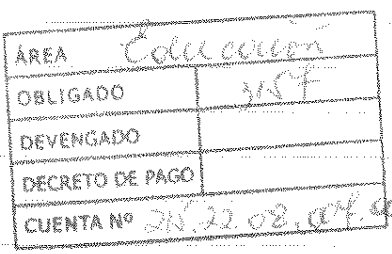 ÁREA Educación
OBLIGADO 3157
DEVENGADO
DECRETO DE PAGO
CUENTA Nº 215.22.08.